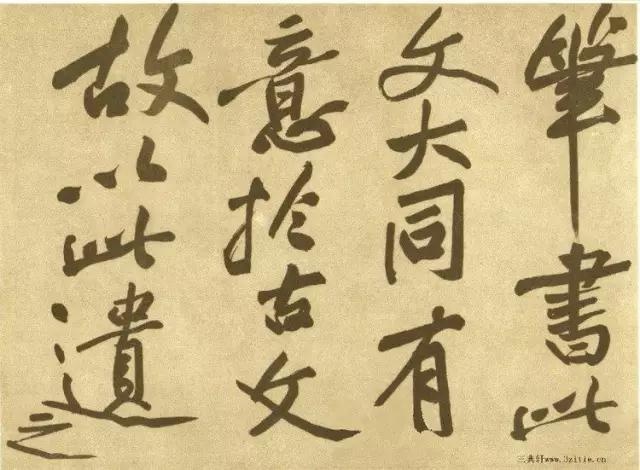 筆書此
文大同有
意於古文
故以此遺之
三典轩www.3zitie.cn